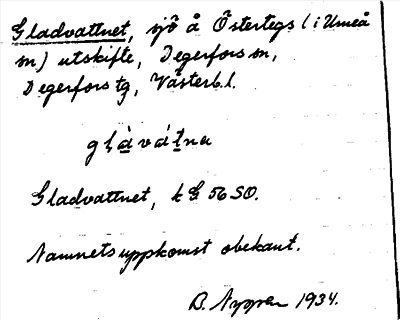 Gladvattnet, sjö å Östertegs (i Umeå
sn) utskifte, Degerfors sn,
Degerfors tg, Västerb.l.
glàvátna
Gladvattnet, k G 56 SO.
Namnets uppkomst obekant.
B. 1934.